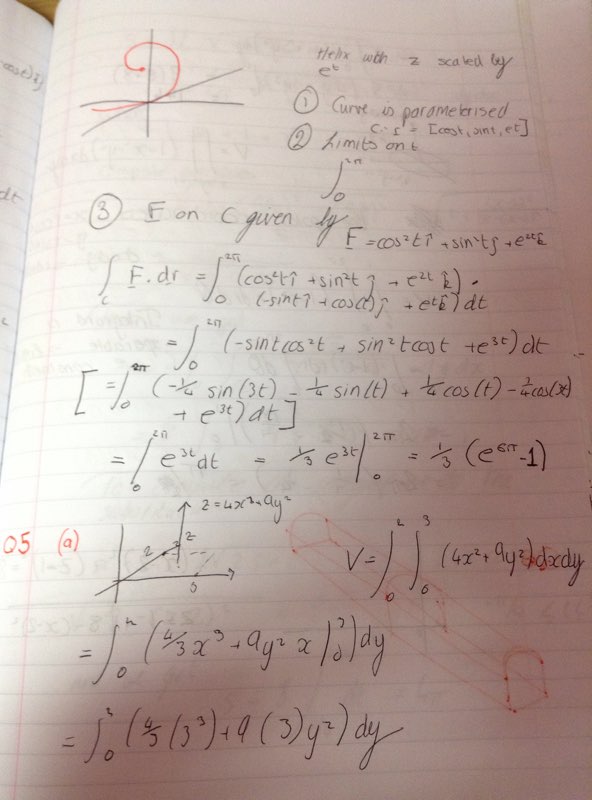 Helix with z scaled by
e^t
① Curve is parameterised
C: r = [cost, sint, e^t]
② Limits on t
∫₀^2π
③ F on C given by
F = cos²t î + sin²t ĵ + e^2t k̂
∫_C F.dr = ∫₀^2π (cos²t î + sin²t ĵ + e^2t k̂) •
(-sint î + cos(t) ĵ + e^t k̂) dt
= ∫₀^2π (-sintcos²t + sin²tcost + e^3t) dt
[= ∫₀^2π (-1/4 sin(3t) - 1/4 sin(t) + 1/4 cos(t) - 3/4 cos(3t)
+ e^3t) dt]
= ∫₀^2π e^3t dt = 1/3 e^3t |₀^2π = 1/3 (e^6π - 1)
Q5 (a)
z = 4x³+9y²
z
2
3
V = ∫₀² ∫₀³ (4x²+9y²) dxdy
= ∫₀² (4/3 x³ + 9y² x |₀³) dy
= ∫₀² (4/3 (3³) + 9 (3) y²) dy